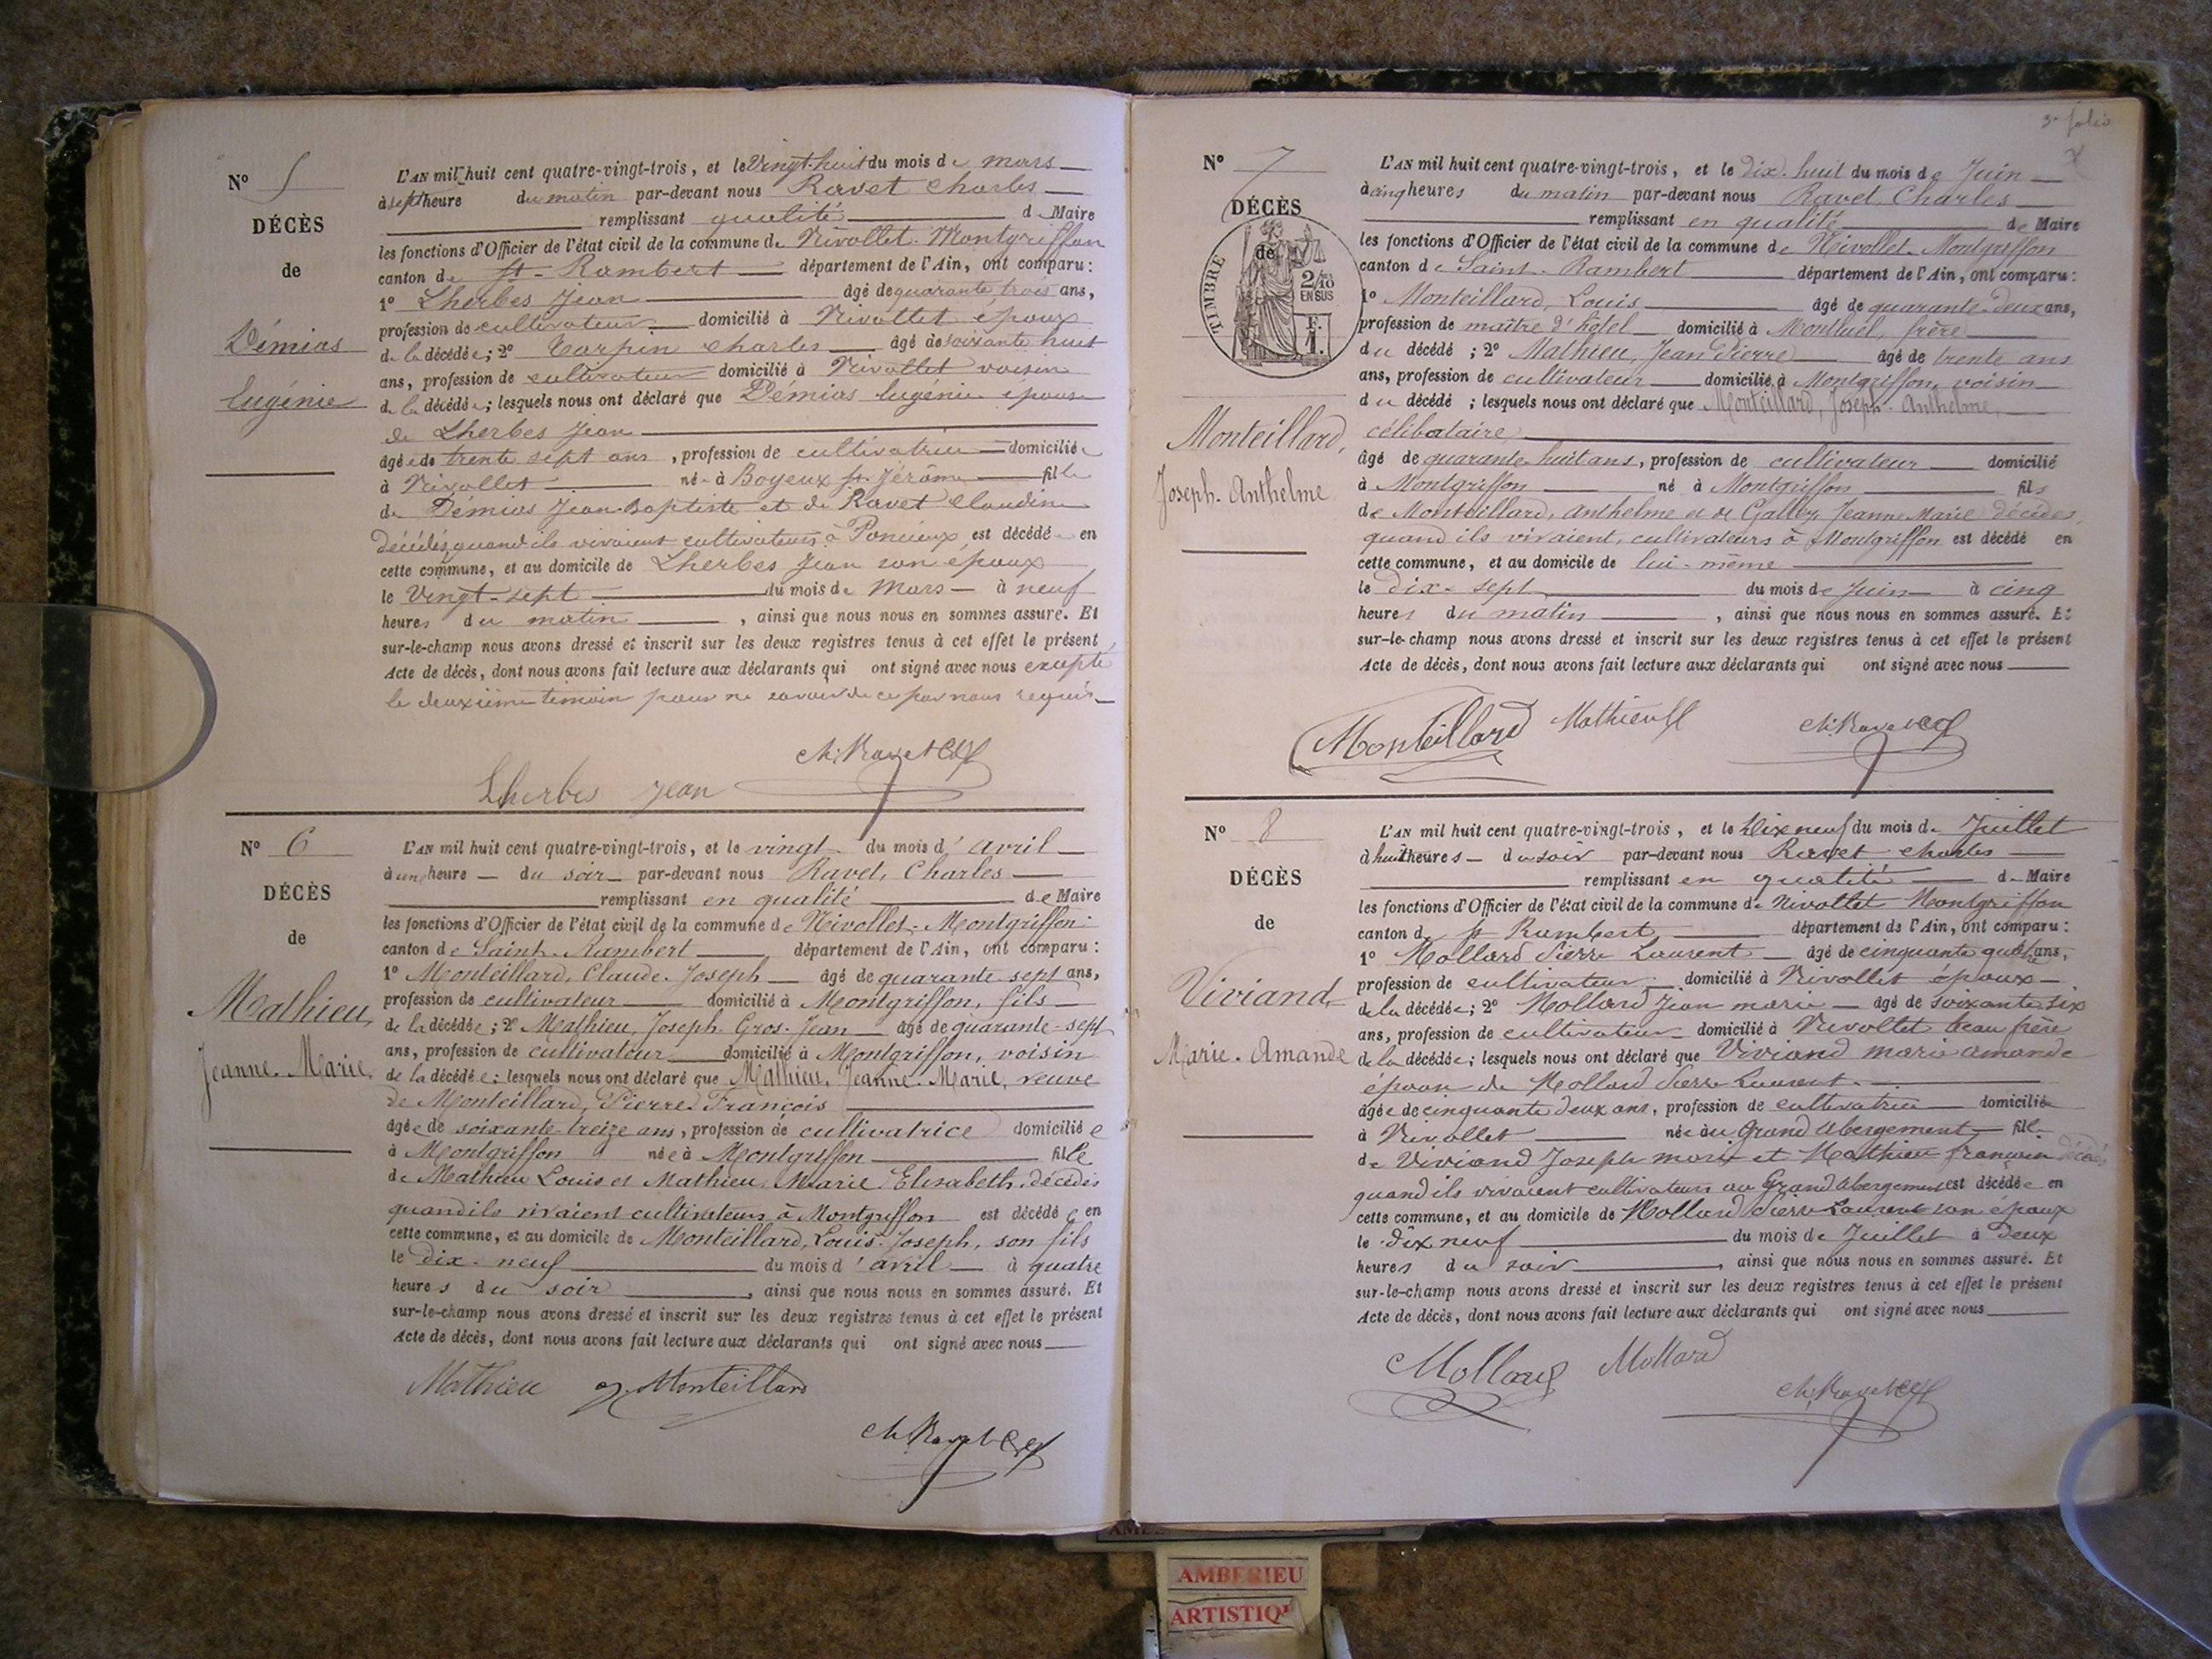 N° 5
DÉCÈS
de
Démias
Eugénie
L'AN mil huit cent quatre-vingt-trois, et le Vingt-huit du mois de mars
à sept heure du matin par-devant nous Ravet Charles
remplissant qualité de Maire
les fonctions d'Officier de l'état civil de la commune de Nivollet-Montgriffon
canton de St-Rambert département de l'Ain, ont comparu:
1° Lherbes Jean âgé de quarante trois ans,
profession de cultivateur domicilié à Nivollet époux
de la décédée; 2° Carpin Charles âgé de soixante huit
ans, profession de cultivateur domicilié à Nivollet voisin
de la décédée; lesquels nous ont déclaré que Démias Eugénie épouse
de Lherbes Jean
âgée de trente sept ans, profession de cultivatrice domiciliée
à Nivollet née à Boyeux St Jérôme fille
de Démias Jean-Baptiste et de Ravet Claudine
décédés, quand ils vivaient cultivateurs à Poncieux est décédée en
cette commune, et au domicile de Lherbes Jean son époux
le Vingt-sept du mois de Mars à neuf
heures du matin, ainsi que nous nous en sommes assuré. Et
sur-le-champ nous avons dressé et inscrit sur les deux registres tenus à cet effet le présent
Acte de décès, dont nous avons fait lecture aux déclarants qui ont signé avec nous excepté
le deuxième témoin pour ne savoir de ce par nous requis
Ch. Ravet
Lherbes Jean
N° 6
DÉCÈS
de
Mathieu,
Jeanne-Marie.
L'AN mil huit cent quatre-vingt-trois, et le vingt du mois d'avril
à une heure du soir par-devant nous Ravet, Charles
remplissant en qualité de Maire
les fonctions d'Officier de l'état civil de la commune de Nivollet-Montgriffon
canton de Saint-Rambert département de l'Ain, ont comparu:
1° Monteillard, Claude-Joseph âgé de quarante-sept ans,
profession de cultivateur domicilié à Montgriffon, fils
de la décédée; 2° Mathieu, Joseph-Gros-Jean âgé de quarante-sept
ans, profession de cultivateur domicilié à Montgriffon, voisin
de la décédée; lesquels nous ont déclaré que Mathieu, Jeanne-Marie, veuve
de Monteillard, Pierre François
âgée de soixante-treize ans, profession de cultivatrice domiciliée
à Montgriffon née à Montgriffon fille
de Mathieu Louis et Mathieu, Marie Elisabeth, décédés
quand ils vivaient cultivateurs à Montgriffon est décédée en
cette commune, et au domicile de Monteillard, Louis-Joseph, son fils
le dix-neuf du mois d'avril à quatre
heures du soir, ainsi que nous nous en sommes assuré. Et
sur-le-champ nous avons dressé et inscrit sur les deux registres tenus à cet effet le présent
Acte de décès, dont nous avons fait lecture aux déclarants qui ont signé avec nous
Mathieu Monteillard
Ch. Ravet
3e folio
N° 7
DÉCÈS
de
TIMBRE
2/10
EN SUS
F.
1.
Monteillard,
Joseph-Anthelme
L'AN mil huit cent quatre-vingt-trois, et le dix-huit du mois de Juin
à cinq heures du matin par-devant nous Ravet, Charles
remplissant en qualité de Maire
les fonctions d'Officier de l'état civil de la commune de Nivollet-Montgriffon
canton de Saint-Rambert département de l'Ain, ont comparu:
1° Monteillard, Louis âgé de quarante-deux ans,
profession de maître d'hôtel domicilié à Montluel, frère
du décédé; 2° Mathieu, Jean Pierre âgé de trente ans
ans, profession de cultivateur domicilié à Montgriffon, voisin
du décédé; lesquels nous ont déclaré que Monteillard, Joseph-Anthelme,
célibataire
âgé de quarante-huit ans, profession de cultivateur domicilié
à Montgriffon né à Montgriffon fils
de Monteillard, Anthelme et de Jeanne Marie décédés,
quand ils vivaient, cultivateurs à Montgriffon est décédé en
cette commune, et au domicile de lui-même
le dix-sept du mois de Juin à cinq
heures du matin, ainsi que nous nous en sommes assuré. Et
sur-le-champ nous avons dressé et inscrit sur les deux registres tenus à cet effet le présent
Acte de décès, dont nous avons fait lecture aux déclarants qui ont signé avec nous
Monteillard Mathieu Ch. Ravet
N° 8
DÉCÈS
de
Viviand,
Marie-Amande
L'AN mil huit cent quatre-vingt-trois, et le Dix neuf du mois de Juillet
à huit heures du soir par-devant nous Ravet Charles
remplissant en qualité de Maire
les fonctions d'Officier de l'état civil de la commune de Nivollet Montgriffon
canton de St Rambert département de l'Ain, ont comparu:
1° Mollard Pierre Laurent âgé de cinquante quatre ans,
profession de cultivateur domicilié à Nivollet époux
de la décédée; 2° Mollard Jean marie âgé de soixante six
ans, profession de cultivateur domicilié à Nivollet beau frère
de la décédée; lesquels nous ont déclaré que Viviand marie amande
épouse de Mollard Pierre Laurent
âgée de cinquante deux ans, profession de cultivatrice domiciliée
à Nivollet née au Grand Abergement fille
de Viviand Joseph marie et Mathieu françoise décédés
quand ils vivaient cultivateurs au Grand Abergement est décédée en
cette commune, et au domicile de Mollard Pierre Laurent son époux
le Dix neuf du mois de Juillet à Deux
heures du soir, ainsi que nous nous en sommes assuré. Et
sur-le-champ nous avons dressé et inscrit sur les deux registres tenus à cet effet le présent
Acte de décès, dont nous avons fait lecture aux déclarants qui ont signé avec nous
Mollard Mollard
Ch. Ravet
AMBERIEU
ARTISTIQU